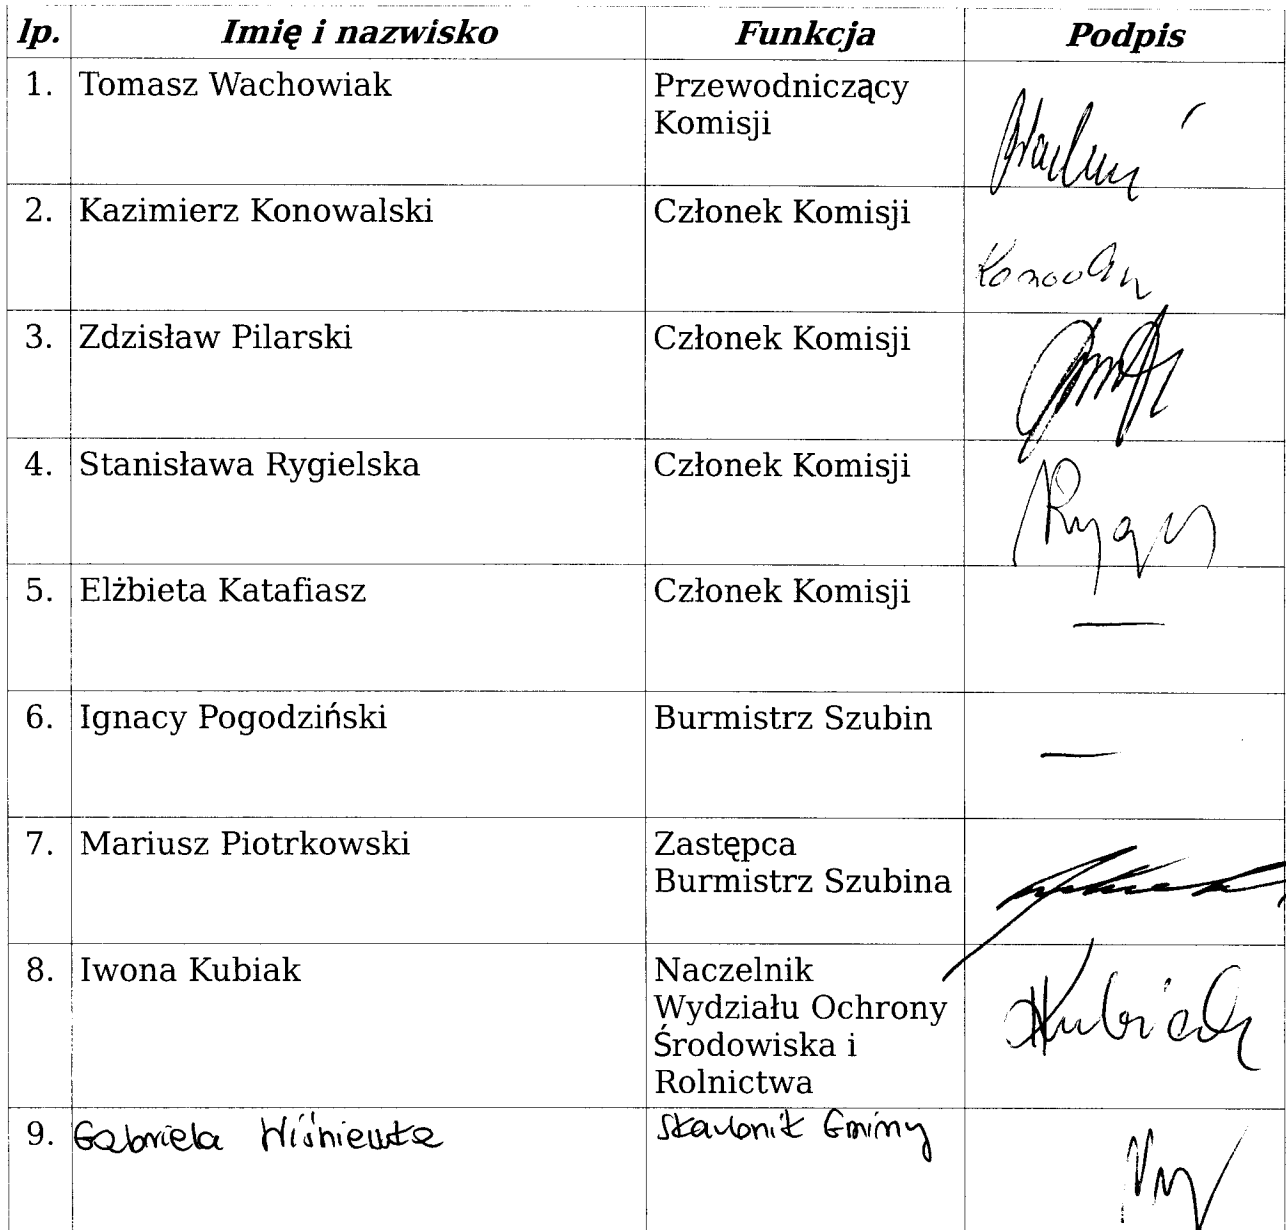 lp. Imię i nazwisko Funkcja Podpis
1. Tomasz Wachowiak Przewodniczący
Komisji
2. Kazimierz Konowalski Członek Komisji
3. Zdzisław Pilarski Członek Komisji
4. Stanisława Rygielska Członek Komisji
5. Elżbieta Katafiasz Członek Komisji
—
6. Ignacy Pogodziński Burmistrz Szubin
—
7. Mariusz Piotrkowski Zastępca
Burmistrz Szubina
8. Iwona Kubiak Naczelnik
Wydziału Ochrony
Środowiska i
Rolnictwa
Kubiak
9. Gabriela Wiśniewska Skarbnik Gminy